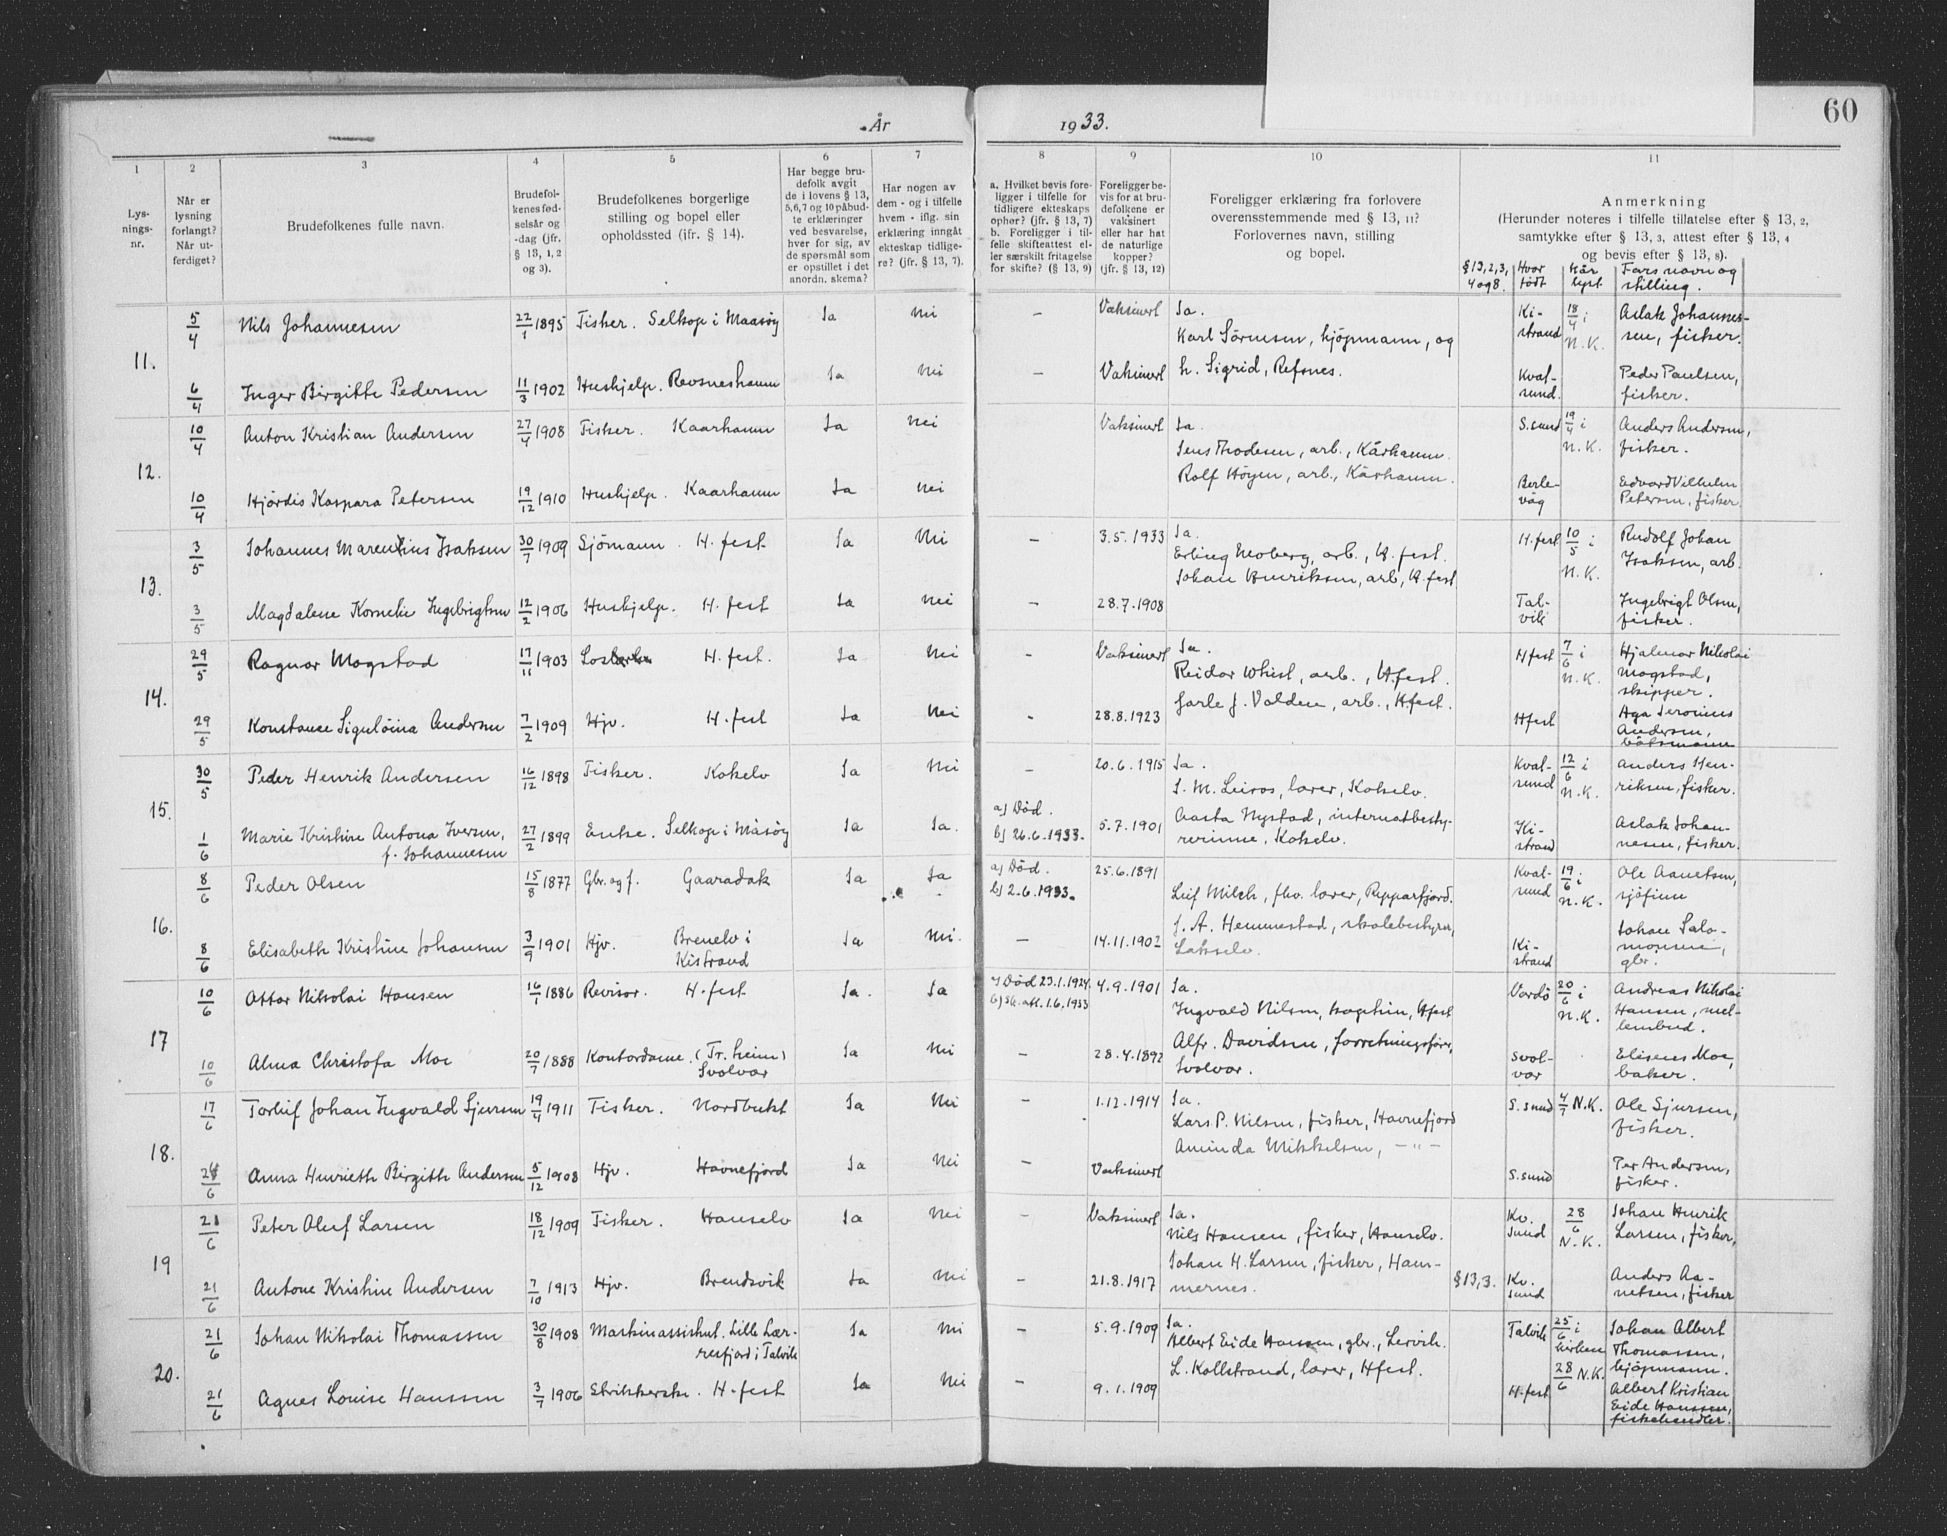 60
År 1933.
1 2 3 4 5 6 7 8 9 10 11
Lys-
nings-
nr.
Når er
lysning
forlangt?
Når ut-
ferdiget?
Brudefolkenes fulle navn.
Brudefol-
kenes fød-
selsår og
-dag (jfr.
§ 13, 1, 2
og 3).
Brudefolkenes borgerlige
stilling og bopel eller
opholdssted (ifr. § 14).
Har begge bru-
defolk avgit
de i lovens § 13,
5,6,7 og 10 påbud-
te erklæringer
ved besvarelse,
hver for sig, av
de spørsmål som
er opstillet i det
anordn. skema?
Har nogen av
dem - og i tilfelle
hvem - iflg. sin
erklæring inngått
ekteskap tidlige-
re? (jfr. § 13, 7).
a. Hvilket bevis fore-
ligger i tilfelle for
tidligere ekteskaps
ophør? (jfr. § 13, 7)
b. Foreligger i til-
felle skifteattest el-
ler særskilt fritagelse
for skifte? (§ 13, 9)
Foreligger be-
vis for at bru-
defolkene er
vaksinert
eller har hat
de naturlige
kopper?
(jfr. § 13, 12)
Foreligger erklæring fra forlovere
overensstemmende med § 13, 11?
Forlovernes navn, stilling
og bopel.
Anmerkning
(Herunder noteres i tilfelle tillatelse efter § 13, 2,
samtykke efter § 13, 3, attest efter § 13, 4
og bevis efter § 13, 8).
§ 13, 2, 3, 4 og 8. Hvor født Når lyst Fars navn og stilling.
11.
5/4 Nils Johannesen 22/1 1895 Fisker. Selkop i Maasøy Ja Nei — Vaksinert Ja. Ki-
strand 18/4 i N.K. Aslak Johannes-
sen, fisker.
Karl Sörensen, kjöpmann, og
6/4 Inger Birgitte Pedersen 11/3 1902 Hushjelp. Revsneshamn Ja Nei — Vaksinert h. Sigrid, Refsnes. Kval-
sund. Peder Paulsen,
fisker.
12.
10/4 Anton Kristian Andersen 27/4 1908 Fisker. Kaarhamn Ja Nei Vaksinert Ja. S.sund 19/4 i N.K. Anders Andersen,
fisker.
Jens Thodesen, arb., Kårhamn.
Rolf Höyen, arb., Kårhamn.
10/4 Hjördis Kaspara Petersen 19/12 1910 Hushjelp. Kaarhamn Ja Nei Berle-
våg Edvard Vilhelm
Petersen, fisker
13.
3/5 Johannes Marenius Isaksen 30/7 1909 Sjömann. H.fest Ja Nei — 3.5.1933 Ja. H.fest 10/5 i N.K. Rudolf Johan
Isaksen, arb.
Erling Moberg, arb., H.fest.
Johan Henriksen, arb, H.fest
3/5 Magdalene Kornelie Ingebrigtsen 12/2 1906 Hushjelp. H.fest Ja Nei — 28.7.1908 Tal-
vik Ingebrigt Olsen,
fisker.
14.
29/5 Ragnar Mogstad 17/11 1903 H.fest. Ja Nei - Vaksinert Ja. Hfest 7/6 i N.K. Hjalmar Nikolai
Mogstad,
skipper.
Reidar Whist, arb., Hfest.
Jarle J. Valden, arb., Hfest.
29/5 Konstanse Andersen 7/2 1909 Hjv. H.fest Ja Nei - 28.8.1923 Hfest Aga Jeronius
Andersen,
båtsmann
15.
30/5 Peder Henrik Andersen 16/12 1898 Fisker. Kokelv Ja Nei — 20.6.1915 Ja. Kval-
sund 12/6 i N.K. Anders Hen-
riksen, fisker.
J. M. Leiros, lærer, Kokelv.
1/6 Marie Kristine Antona Iversen,
f. Johannesen 27/2 1899 Enke. Selkop i Måsøy Ja Ja. a) Död.
b) 26.6.1933. 5.7.1901 Aasta Nystad, internatbesty-
rerinne, Kokelv. Ki-
strand Aslak Johan-
nesen, fisker.
16.
8/6 Peder Olsen 15/8 1877 Gbr. og f. Gaaradak Ja Ja a) Död.
b) 2.6.1933. 25.6.1891 Kval-
sund 19/6 i N.K. Ole Aanetsen,
sjöfinne
Leif Milch, fhv. lærer, Repparfjord.
J. A. Hemmestad, skolebestyrer,
Lakselv.
8/6 Elisabeth Kristine Johansen 3/9 1901 Hjv. Brenelv i
Kistrand Ja Nei. — 14.11.1902 Ki-
strand Johan Salo-
monsen,
gbr.
17
10/6 Ottar Nikolai Hansen 16/1 1886 Revisor. H.fest Ja. Ja a) Död 23.1.1924.
b) Sk. att. 1.6.1933 4.9.1901 Ja. Vardö 20/6 i N.K. Andreas Nikolai
Hansen, mel-
lembud.
Ingvald Nilsen, kaptein, Hfest
Alfr. Davidsen, forretningsförer,
Svolvær.
10/6 Alma Christofa Moe 20/7 1888 Kontordame. (Tr.heim)
Svolvær Ja Nei — 28.4.1892 Svol-
vær Eliseus Moe,
baker.
18.
17/6 Torleif Johan Ingvald Sjursen 19/4 1911 Fisker. Nordbukt Ja Nei — 1.12.1914 Ja. S.sund 4/7 N.K. Ole Sjursen,
fisker.
Lars P. Nilsen, fisker, Havnefjord
Aminda Mikkelsen, —"—
24/6 Anna Henriette Birgitte Andersen 5/12 1908 Hjv. Havnefjord Ja Nei — Vaksinert S.sund Per Andersen,
fisker.
19
21/6 Peter Oluf Larsen 18/12 1909 Fisker. Hanselv Ja Nei — Vaksinert Ja. Kv.
sund 28/6 N.K. Johan Henrik
Larsen, fisker,
Nils Hansen, fisker, Hanselv.
Johan H. Larsen, fisker, Ham-
mernes.
21/6 Antone Kristine Andersen 7/10 1913 Hjv. Brendsvik Ja Nei — 21.8.1917 §13,3. Kv.
sund Anders Aa-
netsen, fisker
20.
21/6 Johan Nikolai Thomassen 30/8 1908 Maskinassistent. Lille Lær-
resfjord i Talvik Ja Nei — 5.9.1909 Ja. Talvik 25/6 i kirken
28/6 N.K. Johan Albert
Thomassen,
kjöpmann.
Albert Eide Hanssen, gbr., Lervik.
L. Kollstrand, lærer, Hfest.
21/6 Agnes Louise Hanssen 3/7 1906 Strikkerske. H.fest Ja Nei — 9.1.1909 H.fest Albert Kristian
Eide Hanssen,
fiskehandler.